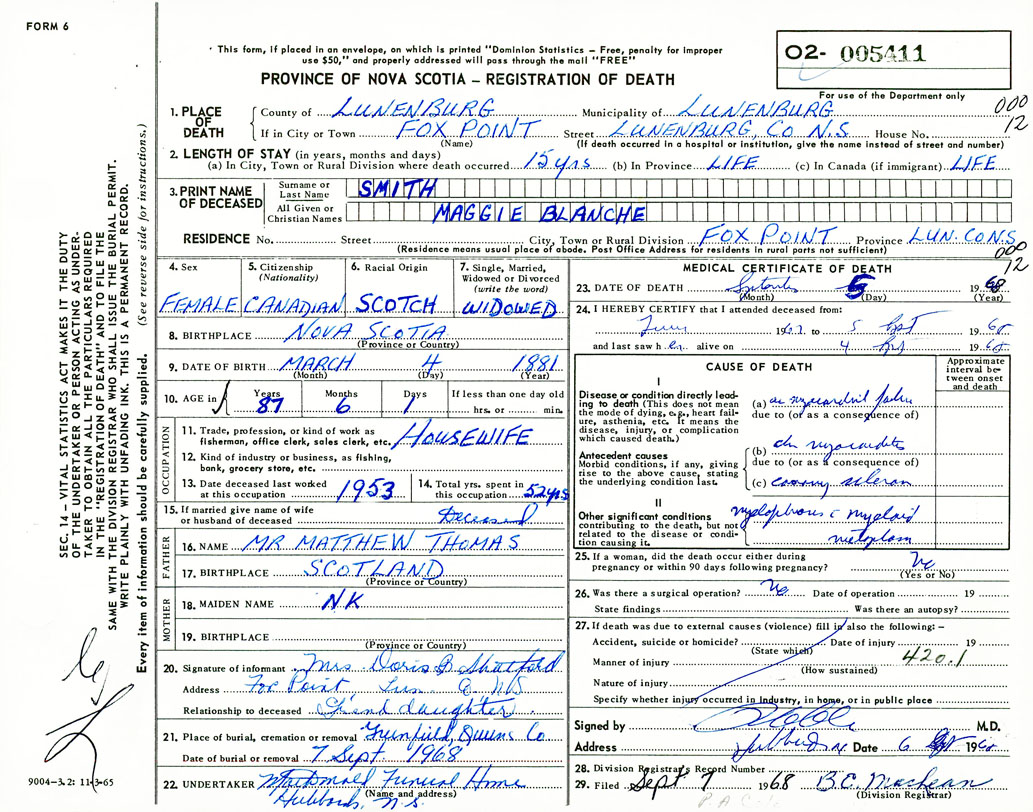 FORM 6
· This form, if placed in an envelope, on which is printed "Dominion Statistics – Free, penalty for improper
use $50," and properly addressed will pass through the mail "FREE"
PROVINCE OF NOVA SCOTIA – REGISTRATION OF DEATH
O2- 005411
For use of the Department only
000
12
1. PLACE OF DEATH
County of LUNENBURG Municipality of LUNENBURG
If in City or Town FOX POINT Street LUNENBURG, CO N.S House No.
(Name) (If death occurred in a hospital or institution, give the name instead of street and number)
2. LENGTH OF STAY (in years, months and days)
(a) In City, Town or Rural Division where death occurred 15 yrs (b) In Province LIFE (c) In Canada (if immigrant) LIFE
3. PRINT NAME OF DECEASED
Surname or Last Name SMITH
All Given or Christian Names MAGGIE BLANCHE
RESIDENCE No. Street City, Town or Rural Division FOX POINT Province LUN. CO N.S
(Residence means usual place of abode. Post Office Address for residents in rural parts not sufficient)
000
12
4. Sex
FEMALE
5. Citizenship
(Nationality)
CANADIAN
6. Racial Origin
SCOTCH
7. Single, Married,
Widowed or Divorced
(write the word)
WIDOWED
8. BIRTHPLACE NOVA SCOTIA
(Province or Country)
9. DATE OF BIRTH MARCH 4 1881
(Month) (Day) (Year)
10. AGE in
Years Months Days If less than one day old
87 6 1 hrs. or min.
OCCUPATION
11. Trade, profession, or kind of work as
fisherman, office clerk, sales clerk, etc. HOUSEWIFE
12. Kind of industry or business, as fishing,
bank, grocery store, etc.
13. Date deceased last worked
at this occupation 1953
14. Total yrs. spent in
this occupation 52 yrs
15. If married give name of wife
or husband of deceased Deceased
FATHER
16. NAME MR MATTHEW THOMAS
17. BIRTHPLACE SCOTLAND
(Province or Country)
MOTHER
18. MAIDEN NAME NK
19. BIRTHPLACE
(Province or Country)
20. Signature of informant Mrs Doris B Shatford
Address Fox Point, Lun. Co NS
Relationship to deceased Grand daughter
21. Place of burial, cremation or removal Greenfield, Queens Co
Date of burial or removal 7 Sept. 1968
22. UNDERTAKER Macdonald Funeral Home
(Name and address)
Hubbards, N.S.
MEDICAL CERTIFICATE OF DEATH
23. DATE OF DEATH 5 1968
(Month) (Day) (Year)
24. I HEREBY CERTIFY that I attended deceased from:
19 to 5 Sept 1968
and last saw her alive on 4 1968
CAUSE OF DEATH
Approximate
interval be-
tween onset
and death
I
Disease or condition directly lead-
ing to death (This does not mean
the mode of dying, e.g., heart fail-
ure, asthenia, etc. It means the
disease, injury, or complication
which caused death.)
(a) ac myocardial failure
due to (or as a consequence of)
Antecedent causes
Morbid conditions, if any, giving
rise to the above cause, stating
the underlying condition last.
(b) chr myocarditis
due to (or as a consequence of)
(c) coronary
II
Other significant conditions
contributing to the death, but not
related to the disease or condi-
tion causing it.
myeloid
25. If a woman, did the death occur either during
pregnancy or within 90 days following pregnancy? No
(Yes or No)
26. Was there a surgical operation? No Date of operation 19
State findings Was there an autopsy?
27. If death was due to external causes (violence) fill in also the following: –
Accident, suicide or homicide? Date of injury 19
(State which)
Manner of injury 420.1
(How sustained)
Nature of injury
Specify whether injury occurred in industry, in home, or in public place
Signed by M.D.
Address Hubbards Date 6 Sept 1968
28. Division Registrar's Record Number
29. Filed Sept 7 1968 B.C. MacLean
(Division Registrar)
SEC. 14 – VITAL STATISTICS ACT MAKES IT THE DUTY
OF THE UNDERTAKER OR PERSON ACTING AS UNDER-
TAKER TO OBTAIN ALL THE PARTICULARS REQUIRED
IN THE "REGISTRATION OF DEATH" AND TO FILE THE
SAME WITH THE DIVISION REGISTRAR WHO SHALL ISSUE THE BURIAL PERMIT.
WRITE PLAINLY WITH UNFADING INK. THIS IS A PERMANENT RECORD.
Every item of information should be carefully supplied. (See reverse side for instructions.)
9004-3.2: 11-3-65